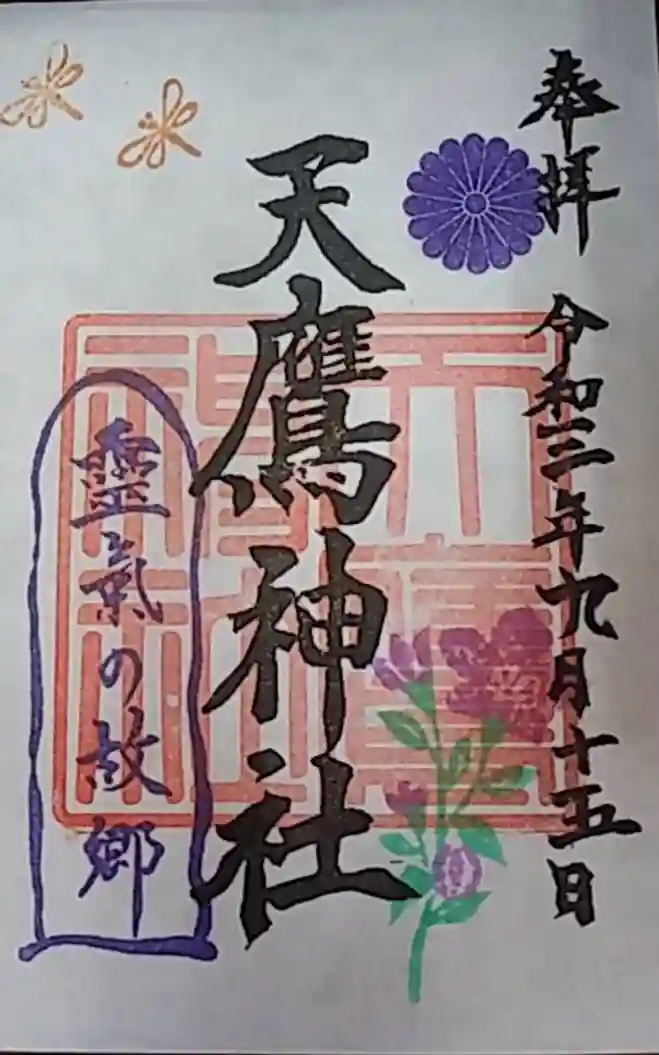 奉拝
令和三年九月十五日
天鷹神社
天鷹神社
靈氣の故郷